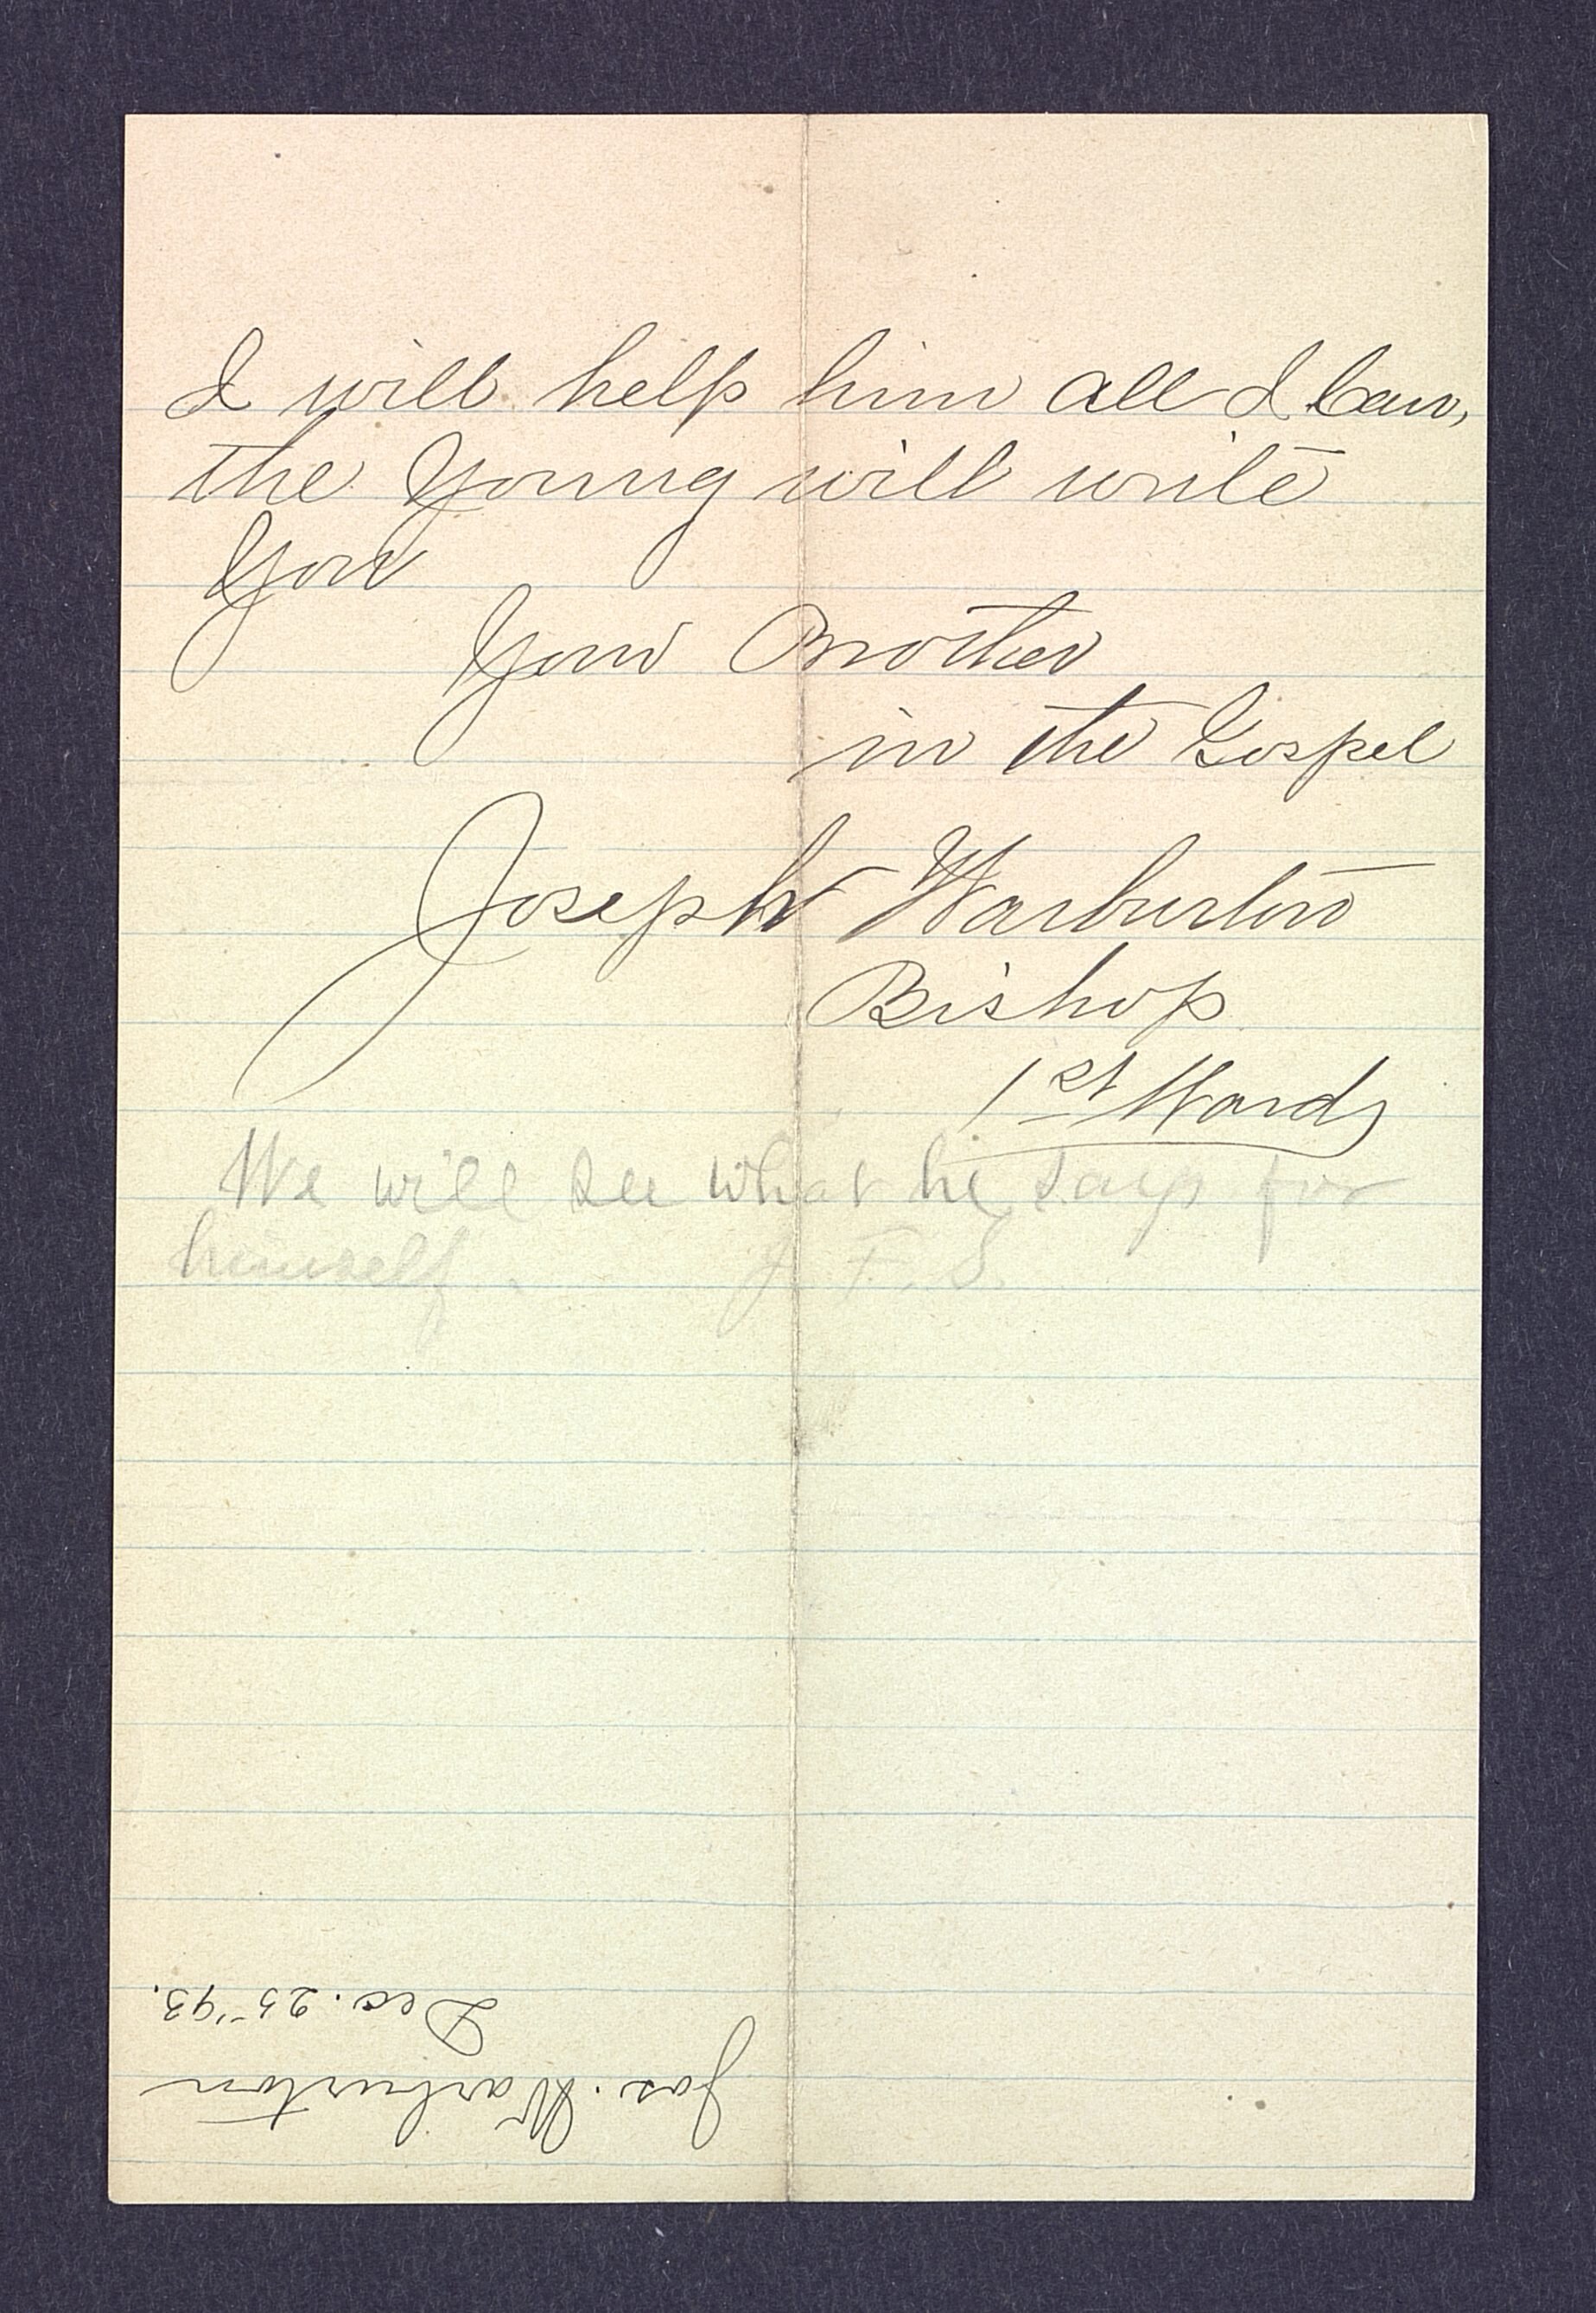 I will help him all I Can,
the Young will write
You
Your Brother
in the Gospel
Joseph Warburton
Bishop
1st Ward
We will see what he says for
himself. J. F. S.
Jos. Warburton
Dec. 25 '93.